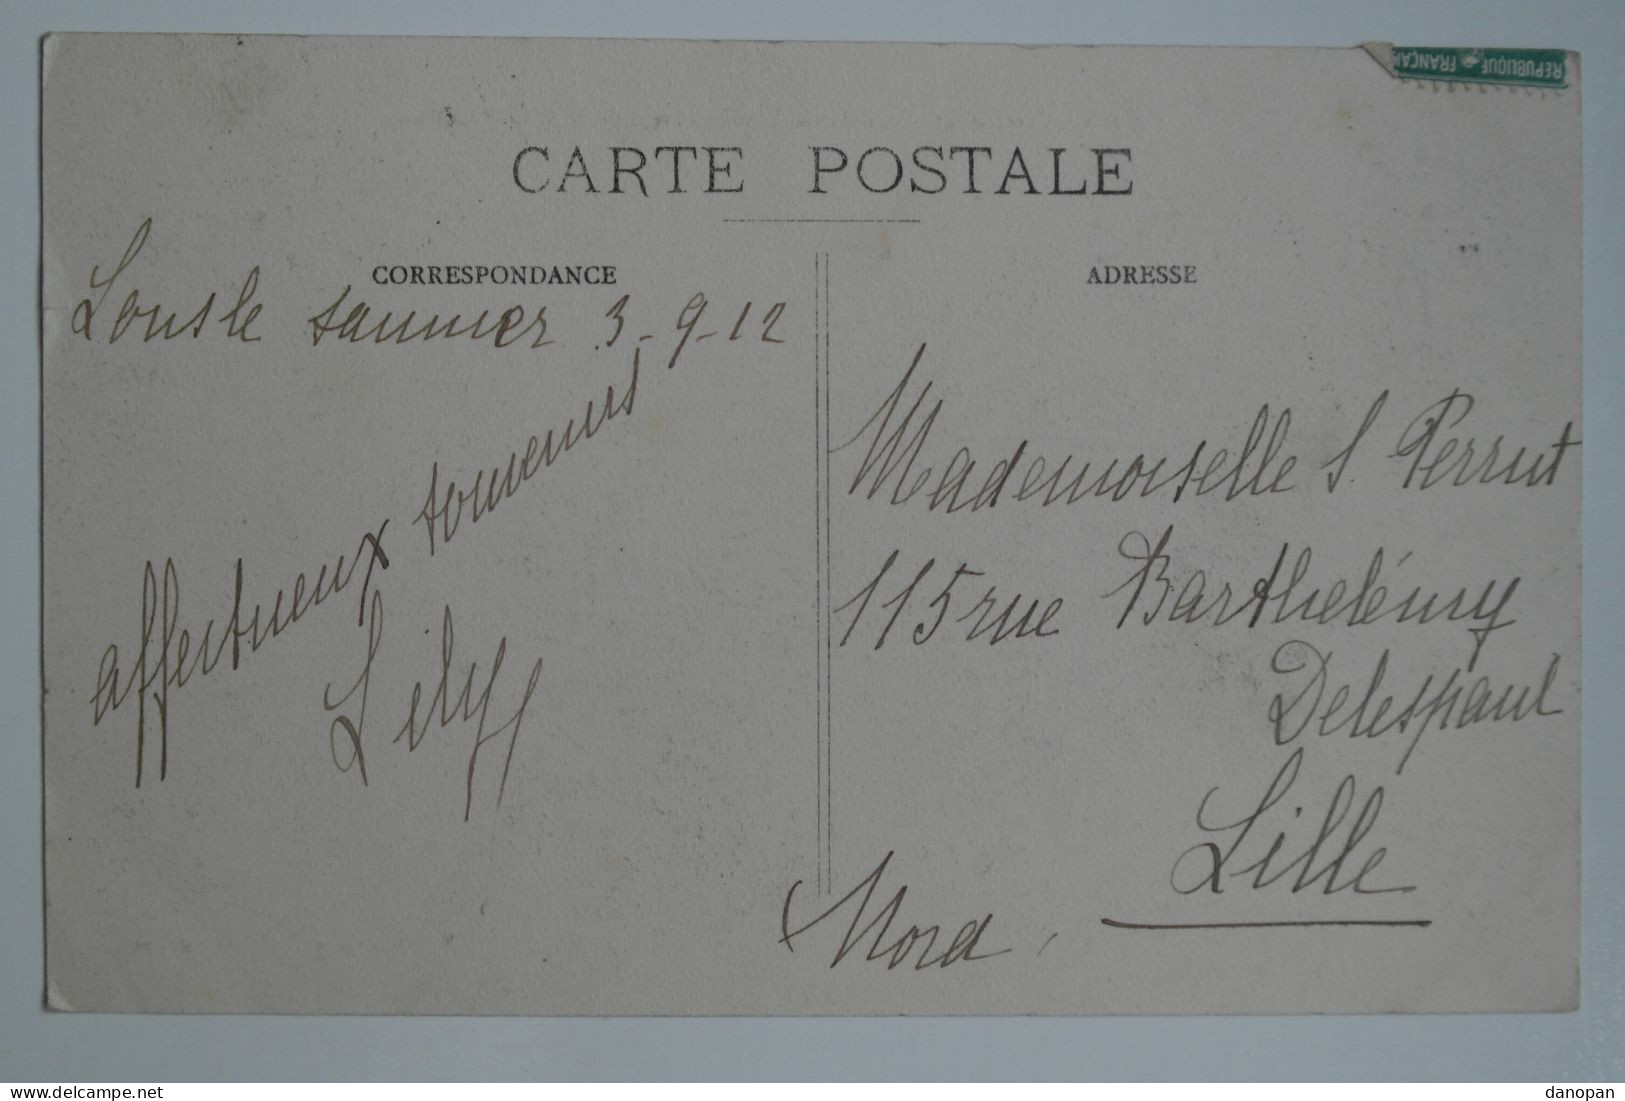 REPUBLIQUE FRANÇAI
CARTE POSTALE
CORRESPONDANCE
Lons le saunier 3-9-12
affectueux souvenirs
Lély
ADRESSE
Mademoiselle S. Perrut
115 rue Barthelémy
Delespaul
Lille
Nord
danopan